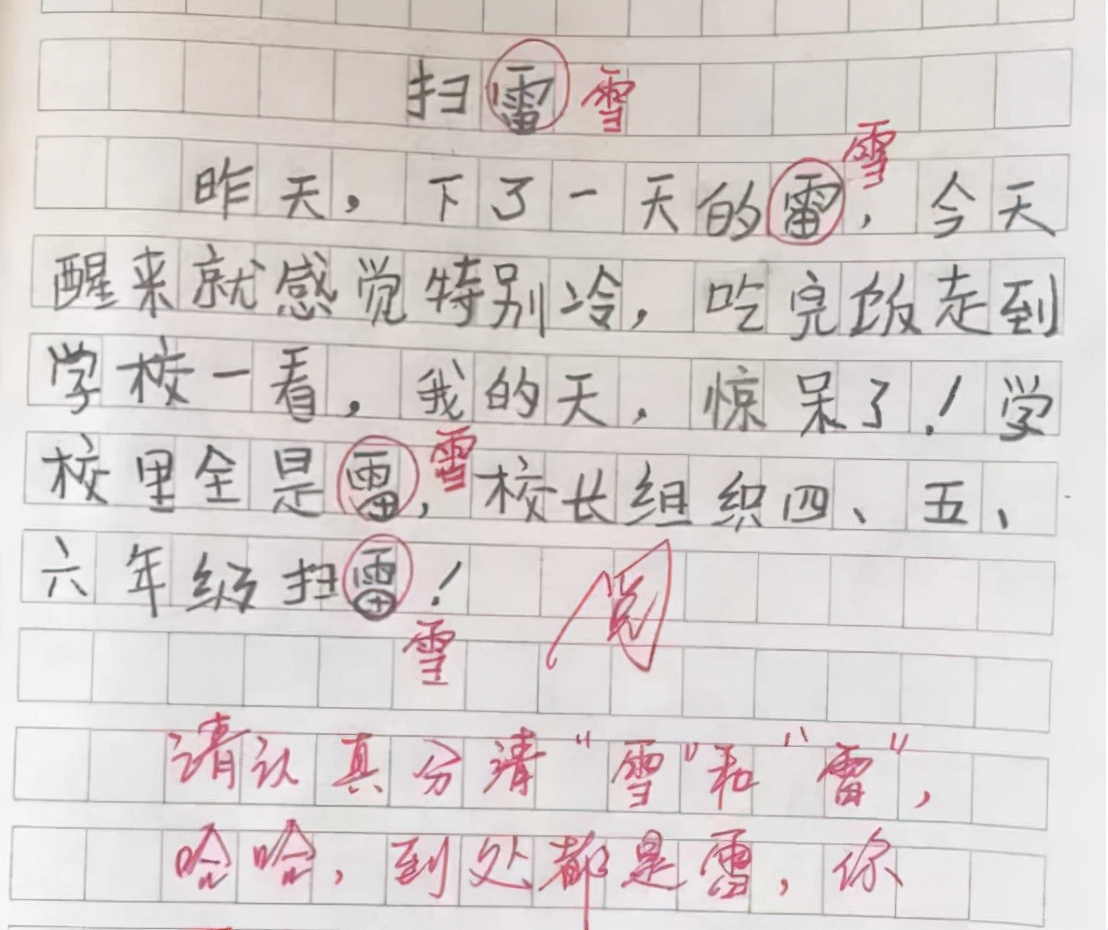 扫雷 雪
雪
昨天，下了一天的雷，今天
醒来就感觉特别冷，吃完饭走到
学校一看，我的天，惊呆了！学
校里全是雷，雪校长组织四、五、
六年级扫雷！
阅
雪
请认真分清“雪”和“雷”，
哈哈，到处都是雷，你